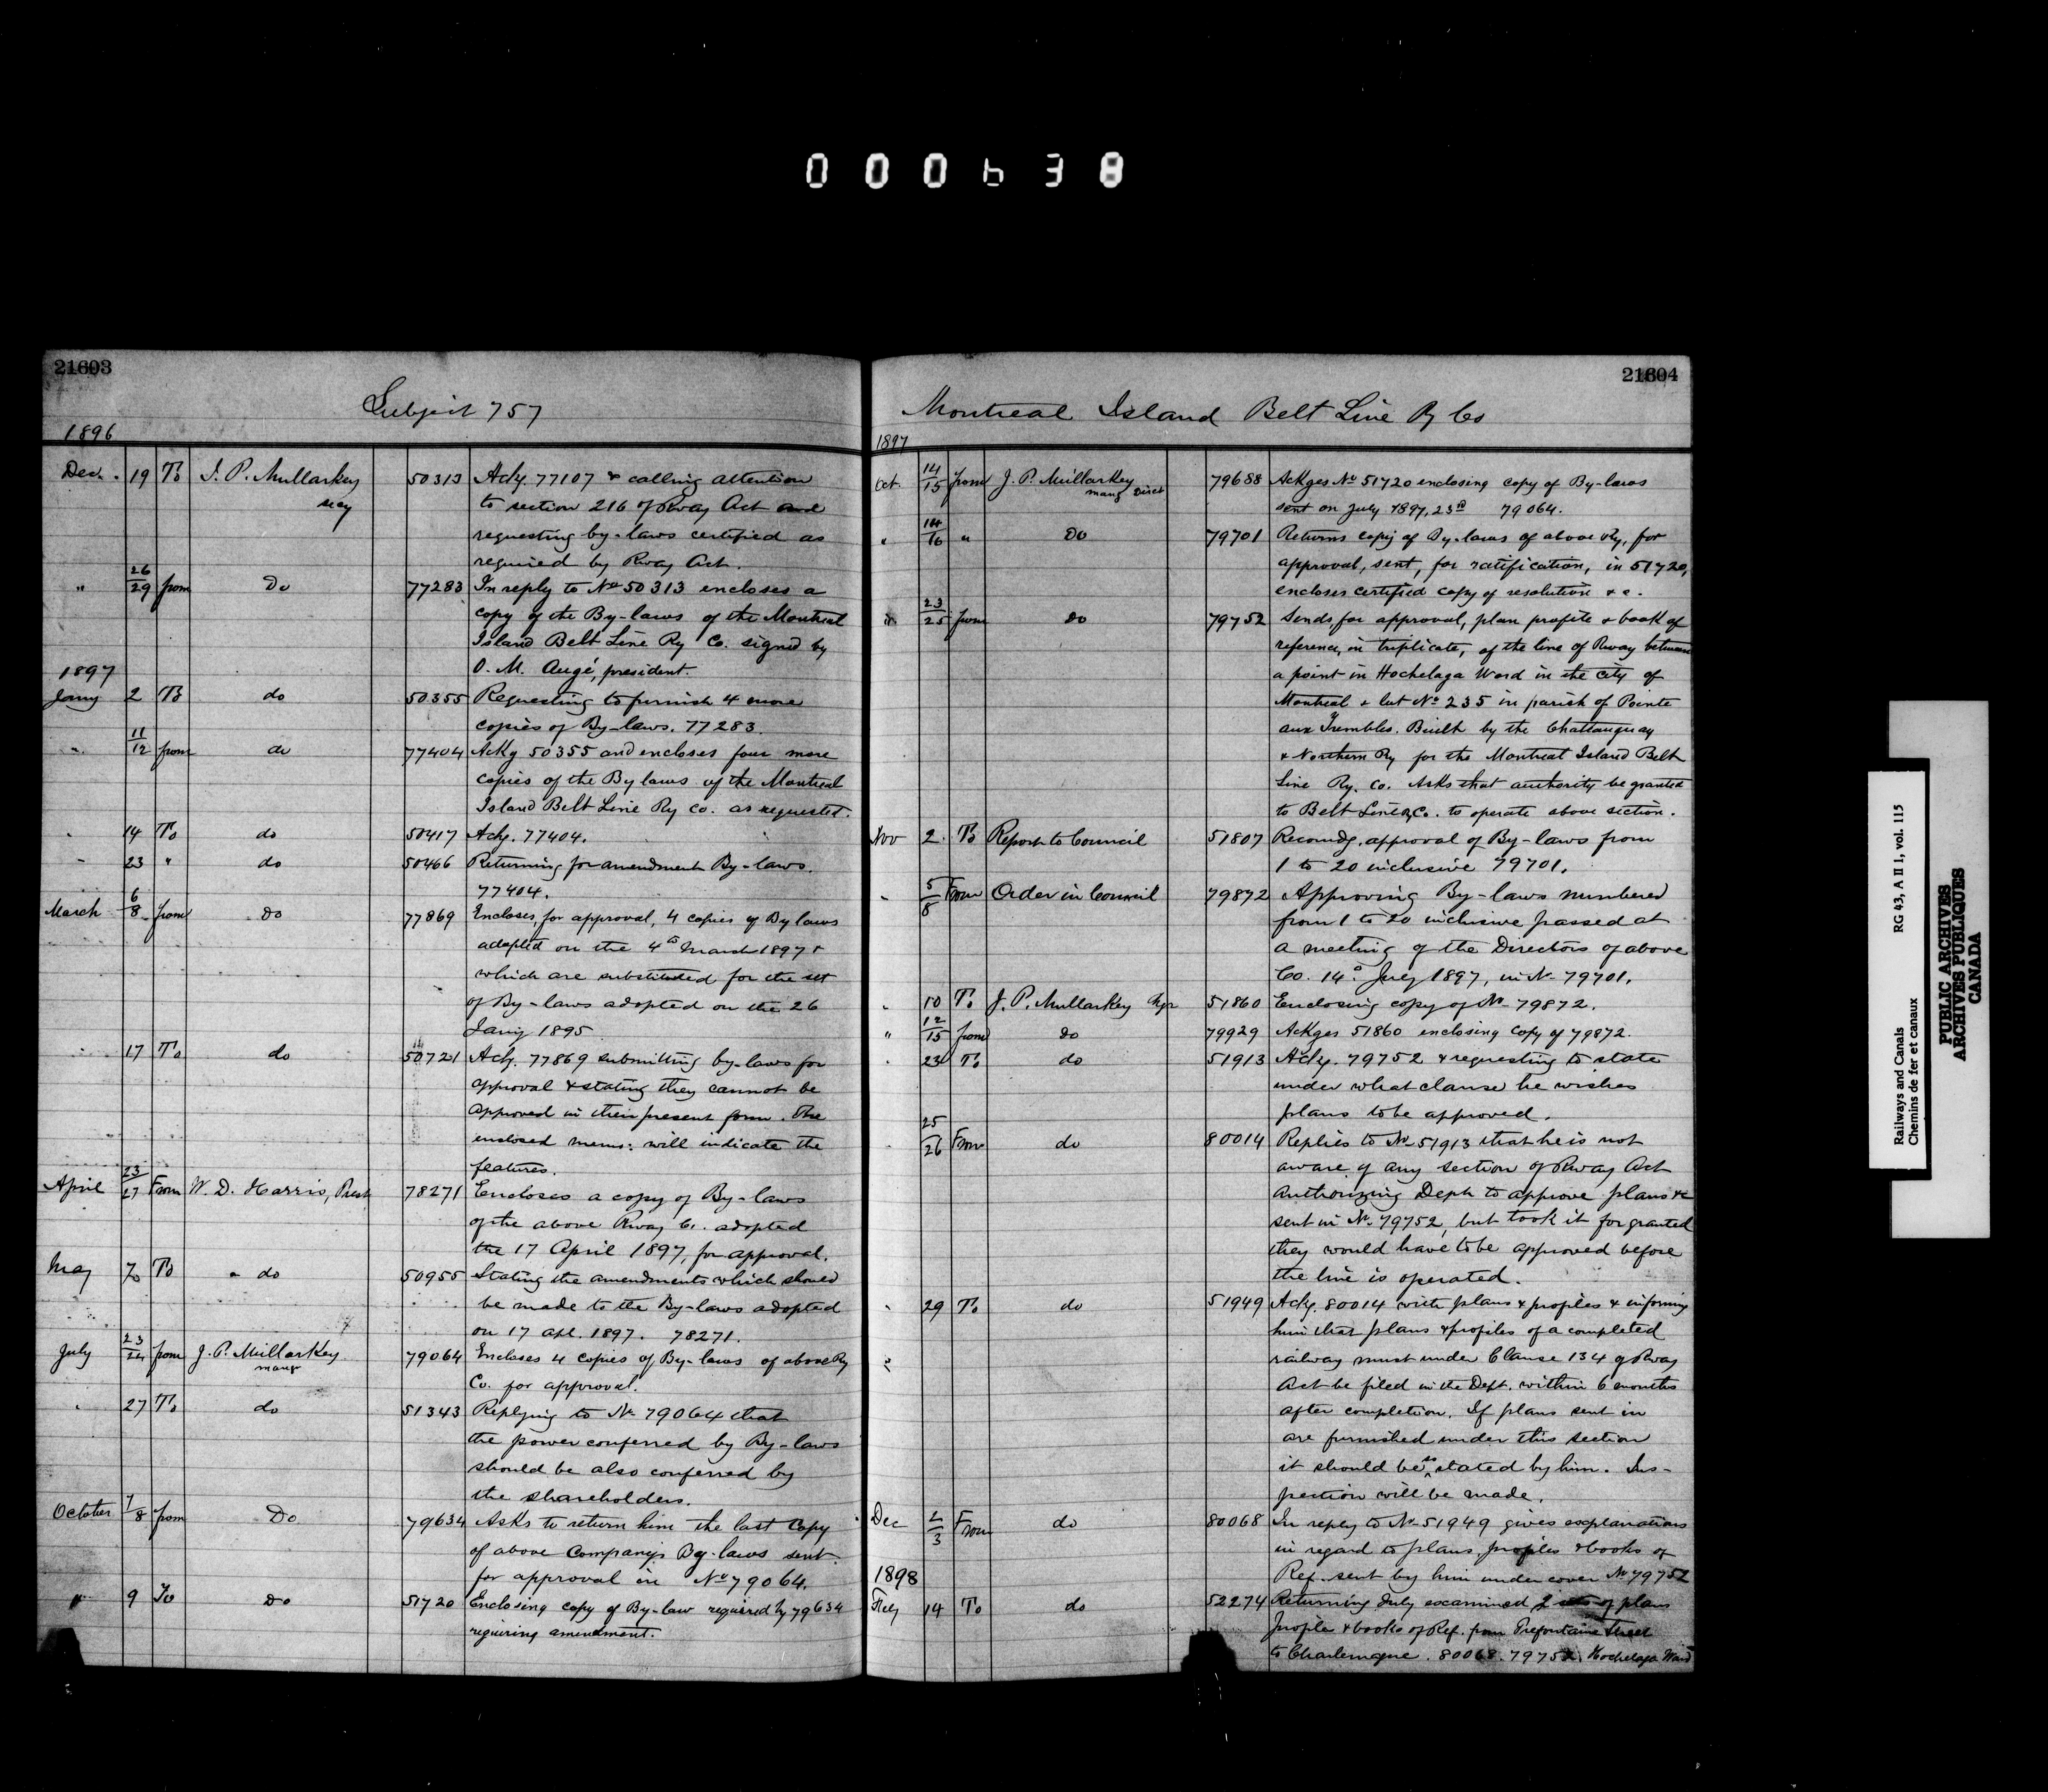 000638
21603
Subject 757
1896
Dec. 19 To J. P. Mullarkey 50313 Ackg. 77107 & calling attention
secy to section 216 of Rway Act and
requesting by-laws certified as
required by Rway Act.
" 26/29 from Do 77283 In reply to No 50313 encloses a
copy of the By-laws of the Montreal
Island Belt Line Ry Co. signed by
O. M. Augé, president.
1897
Jany 2 To do 50355 Requesting to furnish 4 more
copies of By-laws. 77283.
" 11/12 from do 77404 Ackg 50355 and encloses four more
copies of the By laws of the Montreal
Island Belt Line Ry Co. as requested.
" 14 To do 50417 Ackg. 77404.
" 23 " do 50466 Returning for amendment By-laws.
77404.
March 6/8 from Do 77869 Encloses, for approval, 4 copies of By laws
adopted on the 4th March 1897 &
which are substituted for the set
of By-laws adopted on the 26
Jany 1895
" 17 To do 50721 Ackg. 77869 submitting by-laws for
approval & stating they cannot be
approved in their present form. The
enclosed memo: will indicate the
features.
April 23/27 From W. D. Harris, Prest 78271 Encloses a copy of By-laws
of the above Rway Co. adopted
the 17 April 1897, for approval.
May To " do 50955 Stating the amendments which should
be made to the By-laws adopted
on 17 apl. 1897. 78271.
July 23/24 from J. P. Mullarkey 79064 Encloses 4 copies of By-laws of above Ry
mangr Co. for approval.
" 27 To do 51343 Replying to No 79064 that
the power conferred by By-laws
should be also conferred by
the shareholders.
October 7/8 from Do 79634 Asks to return him the last copy
of above Company's By-laws sent
for approval in No 79064.
" 9 To Do 51720 Enclosing copy of By-law required by 79634
requiring amendment.
21604
Montreal Island Belt Line Ry Co
1897
Oct. 14/15 from J. P. Mullarkey 79688 Ackges No 51720 enclosing copy of By-laws
mang Direct sent on July 1897, 23rd 79064.
" 14/16 " Do 79701 Returns copy of By-laws of above Ry, for
approval, sent, for ratification, in 51720,
encloses certified copy of resolution & c.
" 23/25 from do 79752 Sends, for approval, plan profile & book of
reference, in triplicate, of the line of Rway between
a point in Hochelaga Ward in the city of
Montreal & lot No 235 in parish of Pointe
aux Trembles. Built by the Chattauguay
& Northern Ry for the Montreal Island Belt
Line Ry. Co. Asks that authority be granted
to Belt Line Ry Co. to operate above section.
Nov 2. To Report to Council 51807 Recomdg. approval of By-laws from
1 to 20 inclusive 79701.
" 5/8 From Order in Council 79872 Approving By-laws numbered
from 1 to 20 inclusive passed at
a meeting of the Directors of above
Co. 14th July 1897, in No 79701.
" 10 To J. P. Mullarkey Mgr 51860 Enclosing copy of No 79872.
" 12/15 from do 79929 Ackges 51860 enclosing copy of 79872.
" 23 To do 51913 Ackg. 79752 & requesting to state
under what clause he wishes
plans to be approved.
" 25/26 From do 80014 Replies to No 51913 that he is not
aware of any section of Rway Act
authorizing Dept to approve plans &c
sent in No 79752, but took it for granted
they would have to be approved before
the line is operated.
" 29 To do 51949 Ackg. 80014 with plans & profiles & informing
him that plans & profiles of a completed
railway must under Clause 134 of Rway
Act be filed in the Dept. within 6 months
after completion. If plans sent in
are furnished under this section
it should be so stated by him. Ins-
pection will be made.
Dec 2/3 From do 80068 In reply to No 51949 gives explanations
in regard to plans, profiles & books of
Ref. sent by him under cover No 79752
1898
Feby 14 To do 52274 Returning duly examined 2 sets of plans
profile & books of Ref. from Prefontaine Street
to Charlemagne. 80068. 79752. Hochelaga Ward
Railways and Canals RG 43, A II 1, vol. 115
Chemins de fer et canaux
PUBLIC ARCHIVES
ARCHIVES PUBLIQUES
CANADA